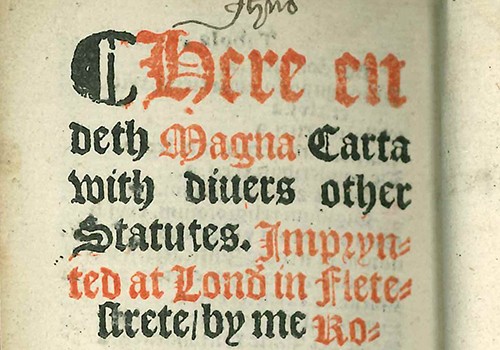 ¶Here en
deth Magna Carta
with diuers other
Statutes. Impryn⸗
ted at Lond̄ in Flete⸗
strete/by me Ro⸗